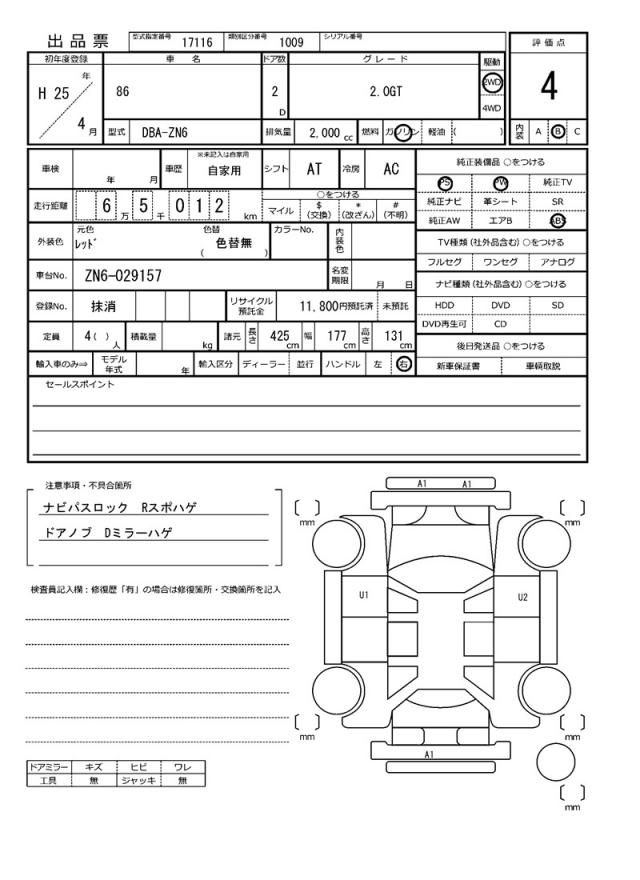 出品票 型式指定番号 17116 類別区分番号 1009 シリアル番号
初年度登録 車名 ドア数 グレード 駆動 評価点
H 25 年 4 月 86 2 D 2.0GT 2WD 4WD 4
型式 DBA-ZN6 排気量 2,000 cc 燃料 ガソリン 軽油 ( ) 内装 A B C
車検 年 月 車歴 ※未記入は自家用 自家用 シフト AT 冷房 AC 純正装備品 ○をつける
PS PW 純正TV
走行距離 6 万 5 千 0 1 2 km ○をつける 純正ナビ 革シート SR
マイル $ (交換) * (改ざん) # (不明) 純正AW エアB ABS
外装色 元色 レッド 色替 ( 色替無 ) カラーNo. 内装色 TV種類 (社外品含む) ○をつける
フルセグ ワンセグ アナログ
車台No. ZN6-029157 名変期限 月 日 ナビ種類 (社外品含む) ○をつける
登録No. 抹消 リサイクル預託金 11,800円預託済 未預託 HDD DVD SD
DVD再生可 CD
定員 4 ( ) 人 積載量 kg 諸元 長さ 425 cm 幅 177 cm 高さ 131 cm 後日発送品 ○をつける
輸入車のみ⇒ モデル年式 年 輸入区分 ディーラー 並行 ハンドル 左 右 新車保証書 車輌取説
セールスポイント
注意事項・不具合箇所
ナビパスロック Rスポハゲ
ドアノブ Dミラーハゲ
検査員記入欄：修復歴「有」の場合は修復箇所・交換箇所を記入
A1 A1
[ ] mm [ ] mm
U1 U2
[ ] mm [ ] mm
A1
[ ] mm
ドアミラー キズ ヒビ ワレ
工具 無 ジャッキ 無